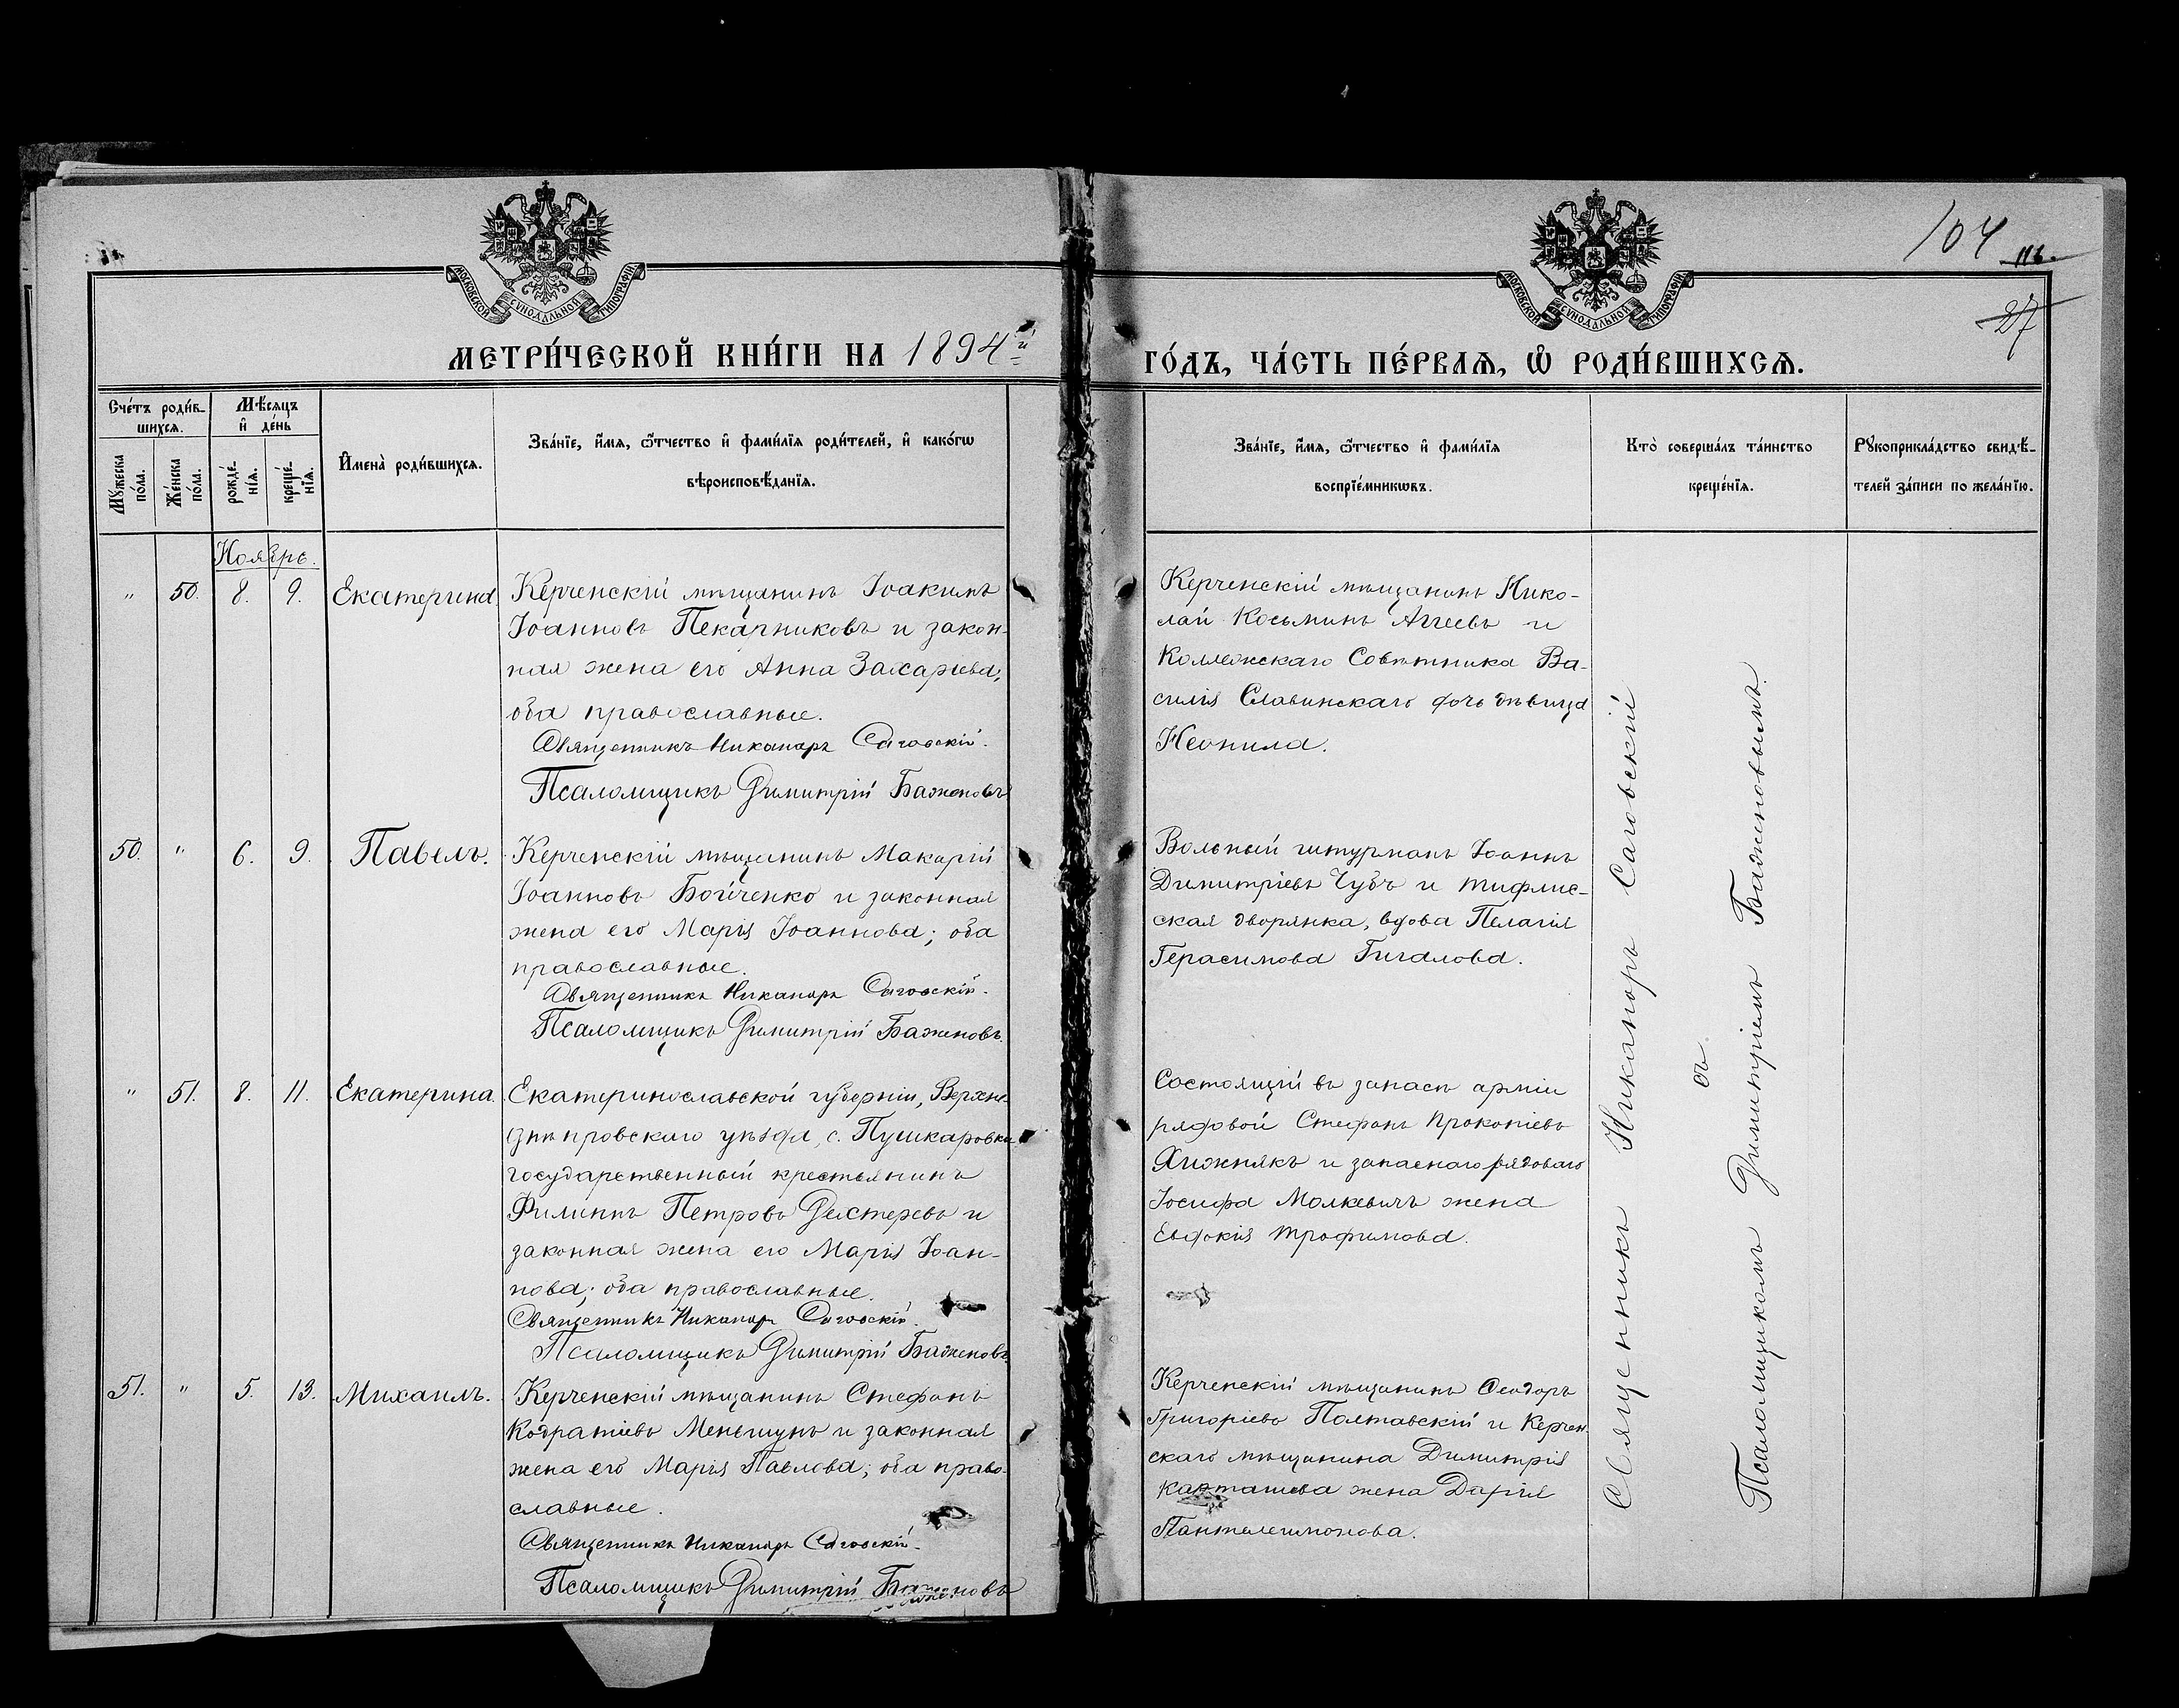 104
116.
27
МОСКОВСКОЙ СУНОДАЛЬНОЙ ТИПОГРАФІИ
МОСКОВСКОЙ СУНОДАЛЬНОЙ ТИПОГРАФІИ
МЕТРИ́ЧЕСКОЙ КНИ́ГИ НА 1894й
ГО́ДЪ, ЧА́СТЬ ПЕ́РВАѦ, Ѡ҆ РОДИ́ВШИХСѦ.
Сче́тъ роди́в-
шихсѧ.
Мѣ́сѧцъ
и҆ де́нь
Мꙋ́жеска
по́ла.
Же́нска
по́ла.
рожде́-
нїѧ.
креще́-
нїѧ.
И҆мена̀ роди́вшихсѧ.
Зва́нїе, и҆́мѧ, ѻ҆́тчество и҆ фами́лїѧ роди́телей, и҆ како́гѡ
вѣроисповѣ́данїѧ.
Зва́нїе, и҆́мѧ, ѻ҆́тчество и҆ фами́лїѧ
воспрїе́мникѡвъ.
Кто̀ соверша́лъ та́инство
креще́нїѧ.
Рꙋкоприкла́дство свидѣ́-
телей за́писи по жела́нїю.
Ноябрь.
" 50. 8. 9. Екатерина
Керченскій мѣщанинъ Іоакимъ
Іоанновъ Пекарниковъ и закон-
ная жена его Анна Захаріева,
оба православные.
Священникъ Никаноръ Саговскій.
Псаломщикъ Димитрій Баженовъ
Керченскій мѣщанинъ Нико-
лай Косьминъ Аггеевъ и
Коллежскаго Совѣтника Ва-
силія Славинскаго дочь дѣвица
Неонила.
50. " 6. 9. Павелъ.
Керченскій мѣщанинъ Макарій
Іоанновъ Бойченко и законная
жена его Марія Іоаннова; оба
православные.
Священникъ Никаноръ Саговскій.
Псаломщикъ Димитрій Баженовъ.
Вольный штурманъ Іоаннъ
Димитріевъ Чубъ и тифлис-
ская дворянка, вдова Пелагія
Герасимова Гигалова.
" 51. 8. 11. Екатерина.
Екатеринославской губерніи, Верхне-
днѣпровскаго уѣзда, с. Пушкаровки
государственный крестьянинъ
Филиппъ Петровъ Дехтеревъ и
законная жена его Марія Іоан-
нова; оба православные.
Священникъ Никаноръ Саговскій.
Псаломщикъ Димитрій Баженовъ.
Состоящій въ запасѣ арміи
рядовой Стефанъ Прокопіевъ
Хижнякъ и запаснаго рядоваго
Іосифа Молкевичъ жена
Евдокія Трофимова.
51. " 5. 13. Михаилъ.
Керченскій мѣщанинъ Стефанъ
Кодратіевъ Меньшунъ и законная
жена его Марія Павлова; оба право-
славные.
Священникъ Никаноръ Саговскій.
Псаломщикъ Димитрій Баженовъ
Керченскій мѣщанинъ Ѳеодоръ
Григоріевъ Полтавскій и Керчен-
скаго мѣщанина Димитрія
Карташева жена Дарія
Пантелеимонова.
Священникъ Никаноръ Саговскій
съ
Псаломщикомъ Димитріемъ Баженовымъ.